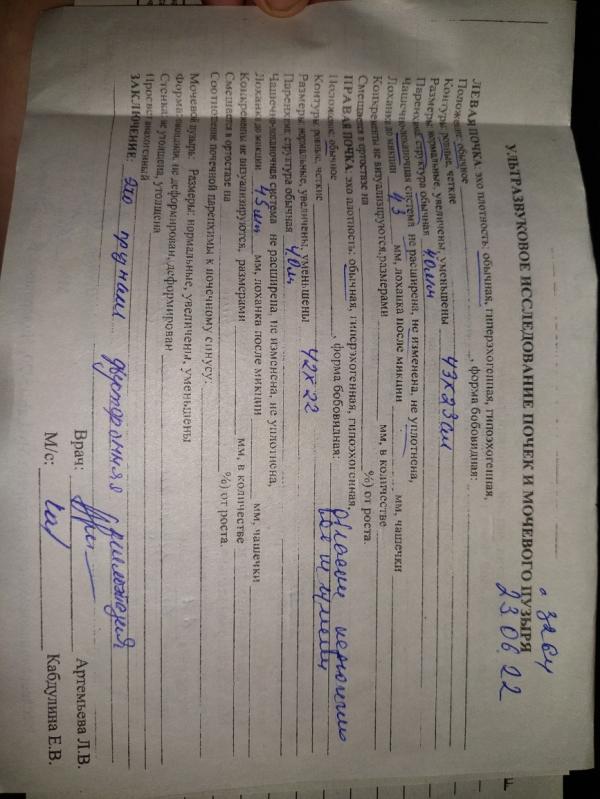 23.06.22
УЛЬТРАЗВУКОВОЕ ИССЛЕДОВАНИЕ ПОЧЕК И МОЧЕВОГО ПУЗЫРЯ
ЛЕВАЯ ПОЧКА, эхо плотность: обычная, гиперэхогенная, гипоэхогенная,
Положение обычное, форма бобовидная:
Контуры ровные, четкие
Размеры нормальные, увеличены, уменьшены 43х23мм
Паренхима: структура обычная
Чашечно-лоханочная система не расширена, не изменена, не уплотнена,
Лоханка до микции 43 мм, лоханка после микции мм, чашечки
Конкременты не визуализируются, размерами мм, в количестве
Смещается в ортостазе на %) от роста.
ПРАВАЯ ПОЧКА, эхо плотность: обычная, гиперэхогенная, гипоэхогенная,
Положение: обычное, форма бобовидная:
Контуры ровные, четкие
Размеры нормальные, увеличены, уменьшены 42х22
Паренхима: структура обычная
Чашечно-лоханочная система не расширена, не изменена, не уплотнена,
Лоханка до микции мм, лоханка после микции мм, чашечки
Конкременты не визуализируются, размерами мм, в количестве
Смещается в ортостазе на %) от роста.
Соотношение почечной паренхимы к почечному синусу:
Мочевой пузырь: Размеры: нормальные, увеличены, уменьшены
Форма овощная, не деформирован, деформирован
Стенка не утолщена, утолщена
Просвет анэхогенный
ЗАКЛЮЧЕНИЕ: эхо двусторонняя
Врач: Артемьева Л.В.
М/с: Кабдулина Е.В.